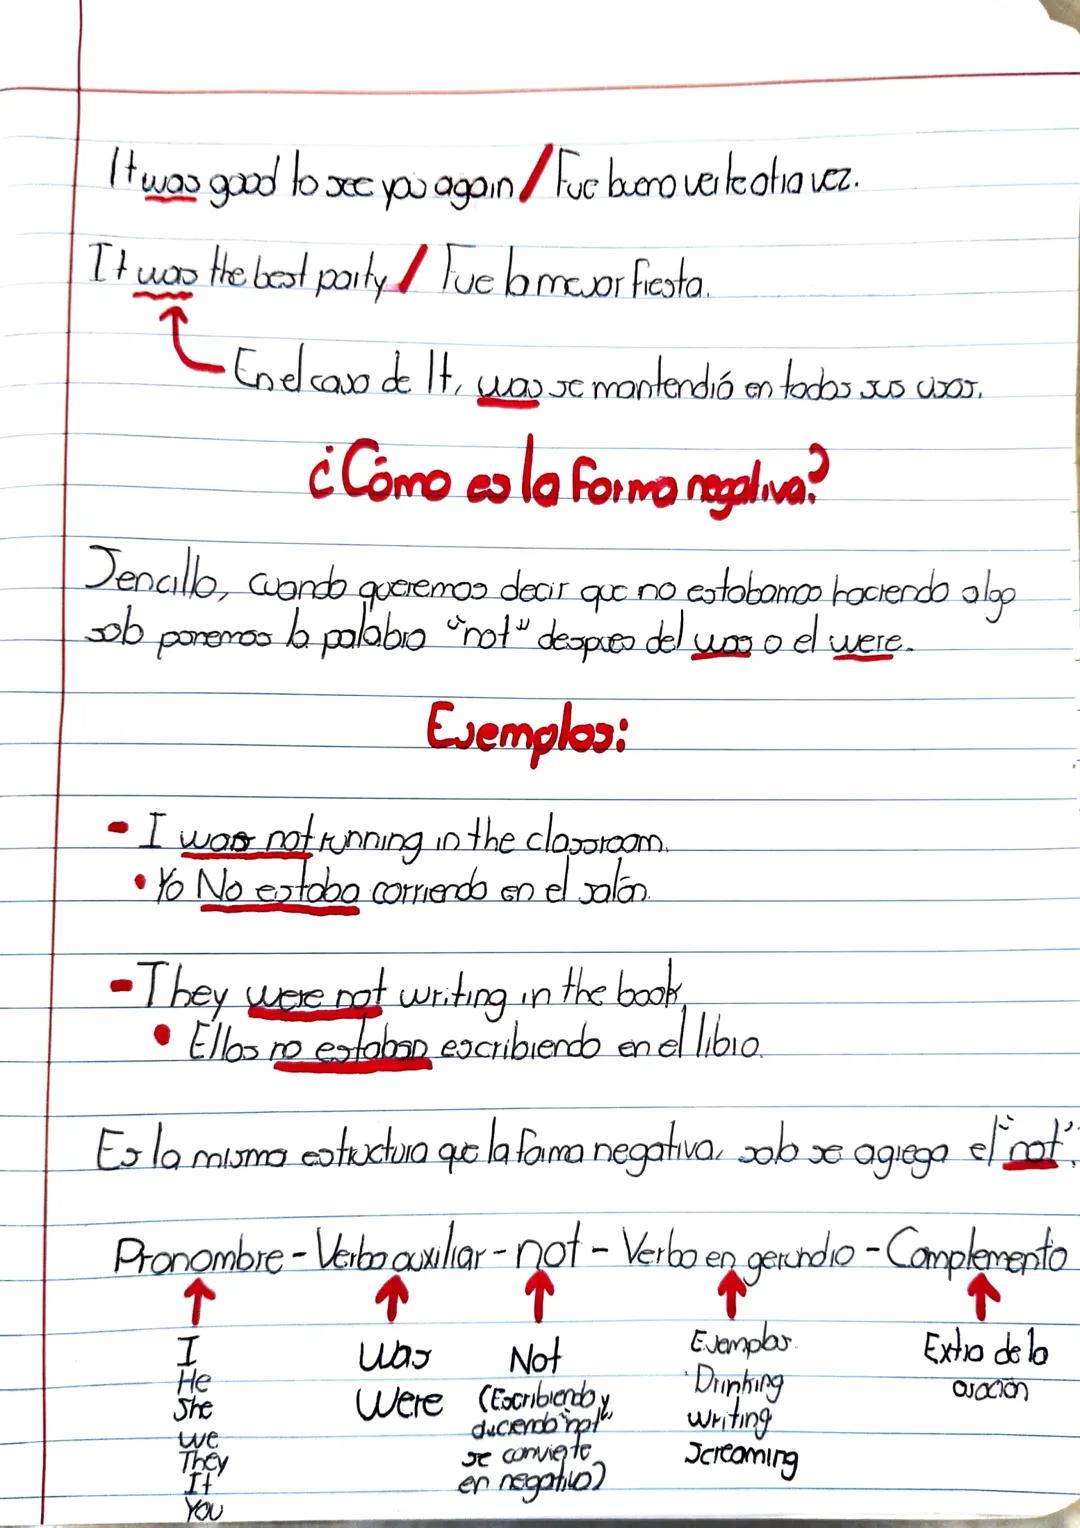 It was good to see you again / Fue bueno verte otra vez.
It was the best party / Fue la mejor fiesta.
En el caso de It, was se mantendió en todos sus usos.
¿Cómo es la forma negativa?
Sencillo, cuando queremos decir que no estabamos haciendo algo
solo ponemos la palabra "not" despues del was o el were.
Ejemplos:
- I was not running in the classroom.
• Yo No estaba corriendo en el salón.
- They were not writing in the book.
• Ellos no estaban escribiendo en el libro.
Es la misma estructura que la forma negativa, solo se agrega el "not".
Pronombre - Verbo auxiliar - not - Verbo en gerundio - Complemento
I
He
She
we
They
It
You
was
Were
Not
(Escribiendo y
duciendo "not"
se convierte
en negativo)
Ejemplos
Drinking
writing
Screaming
Extra de la
oración